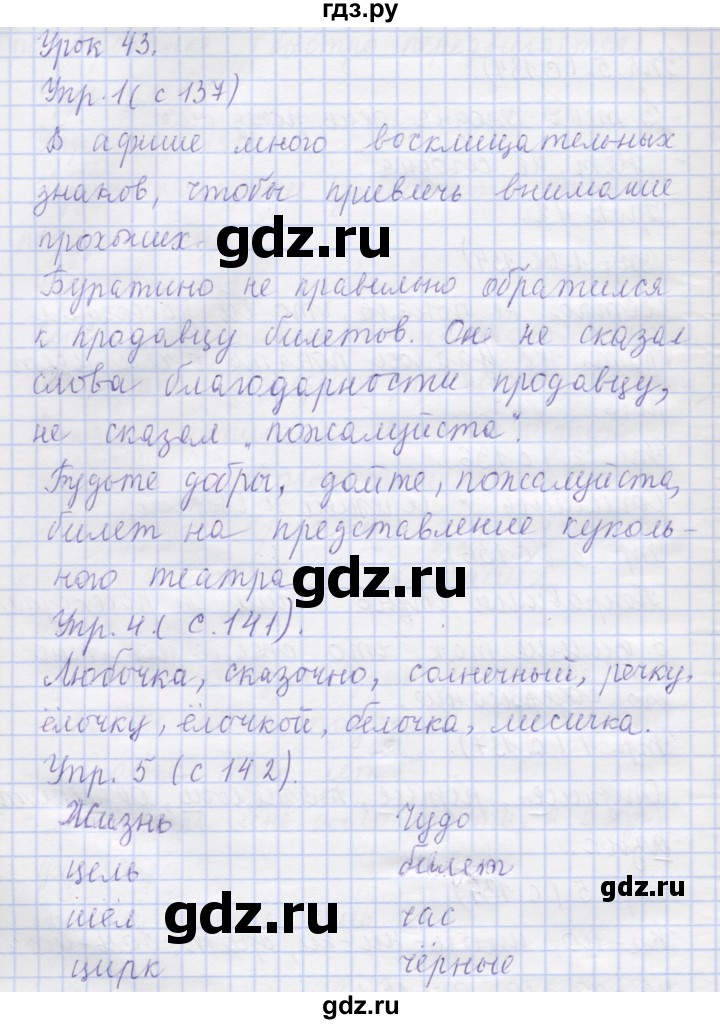 гдз.ру
Урок 43.
Упр. 1 ( с 137)
В афише много восклицательных
знаков, чтобы привлечь внимание
прохожих.
gdz.ru
Буратино не правильно обратился
к продавцу билетов. Он не сказал
слова благодарности продавцу,
не сказал "пожалуйста".
Будьте добры, дайте, пожалуйста,
билет на представление куколь-
ного театра
gdz.ru
Упр. 4.( с. 141).
Любочка, сказочно, солнечный, речку,
ёлочку, ёлочкой, белочка, лисичка.
Упр. 5 (с 142).
Жизнь Чудо
цель билет
gdz.ru
шёл час
gdz.ru
цирк чёрные
gdz.ru